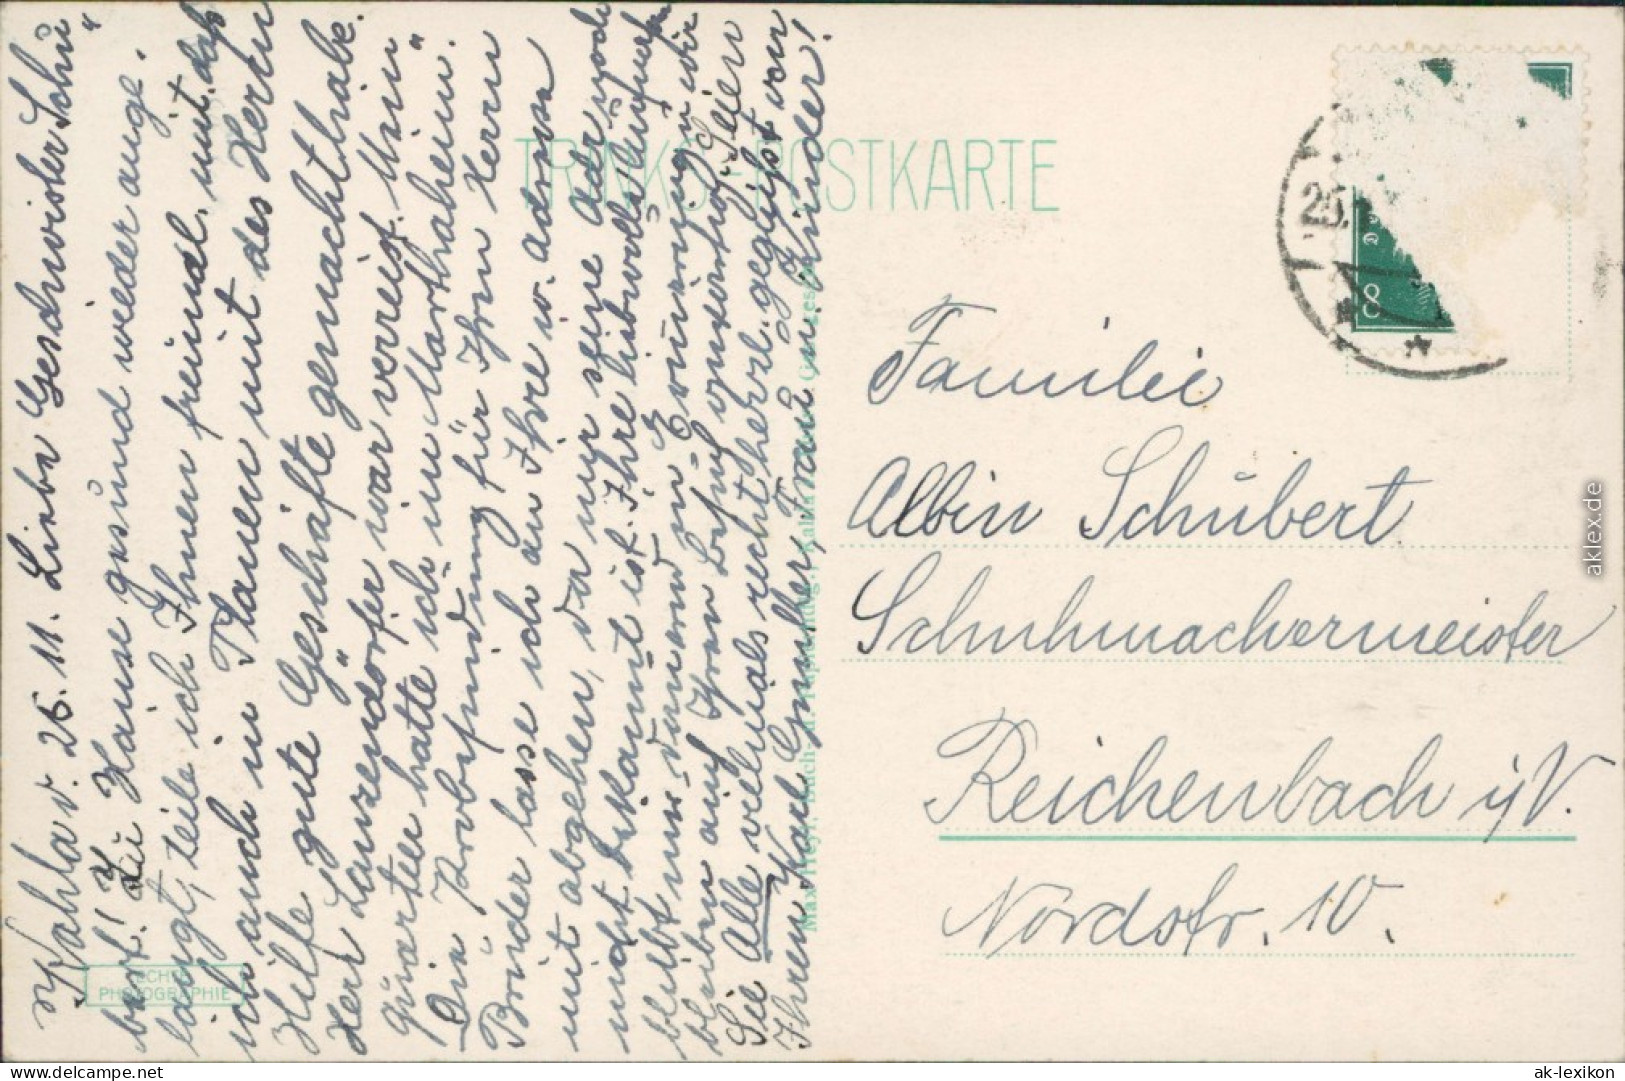 Kahla d. 26.11. Liebe Geschwister Schu"
bert! Zu Hause gesund wieder ange-
langt, teile ich Ihnen freundl. mit, daß
ich auch in Plauen mit des Herrn
Hilfe gute Geschäfte gemacht habe.
Herr Lanzendörfer war verreist. Mein
Quartier hatte ich im "Marthaheim".
Die Probesendung für Ihren Herrn
Bruder lasse ich an Ihre w. Adresse
mit abgehen, da mir seine Adr. noch
nicht bekannt ist. Ihre liebevolle Aufnahme
bleibt uns dauernd in Erinnerung u. wir
Sie Alle vielmals recht herzl. gegrüßt von
Ihrem Karl Günther, Frau u. Kinder!
TRINKS-POSTKARTE
ECHTE
PHOTOGRAPHIE
Max Heyl, Buch- u. Papierhdlg., Kahla
Familie
Albin Schubert
Schuhmachermeister
Reichenbach i/V.
Nordstr. 10.
26.
8
aklex.de
oldthing.com
ak-lexikon